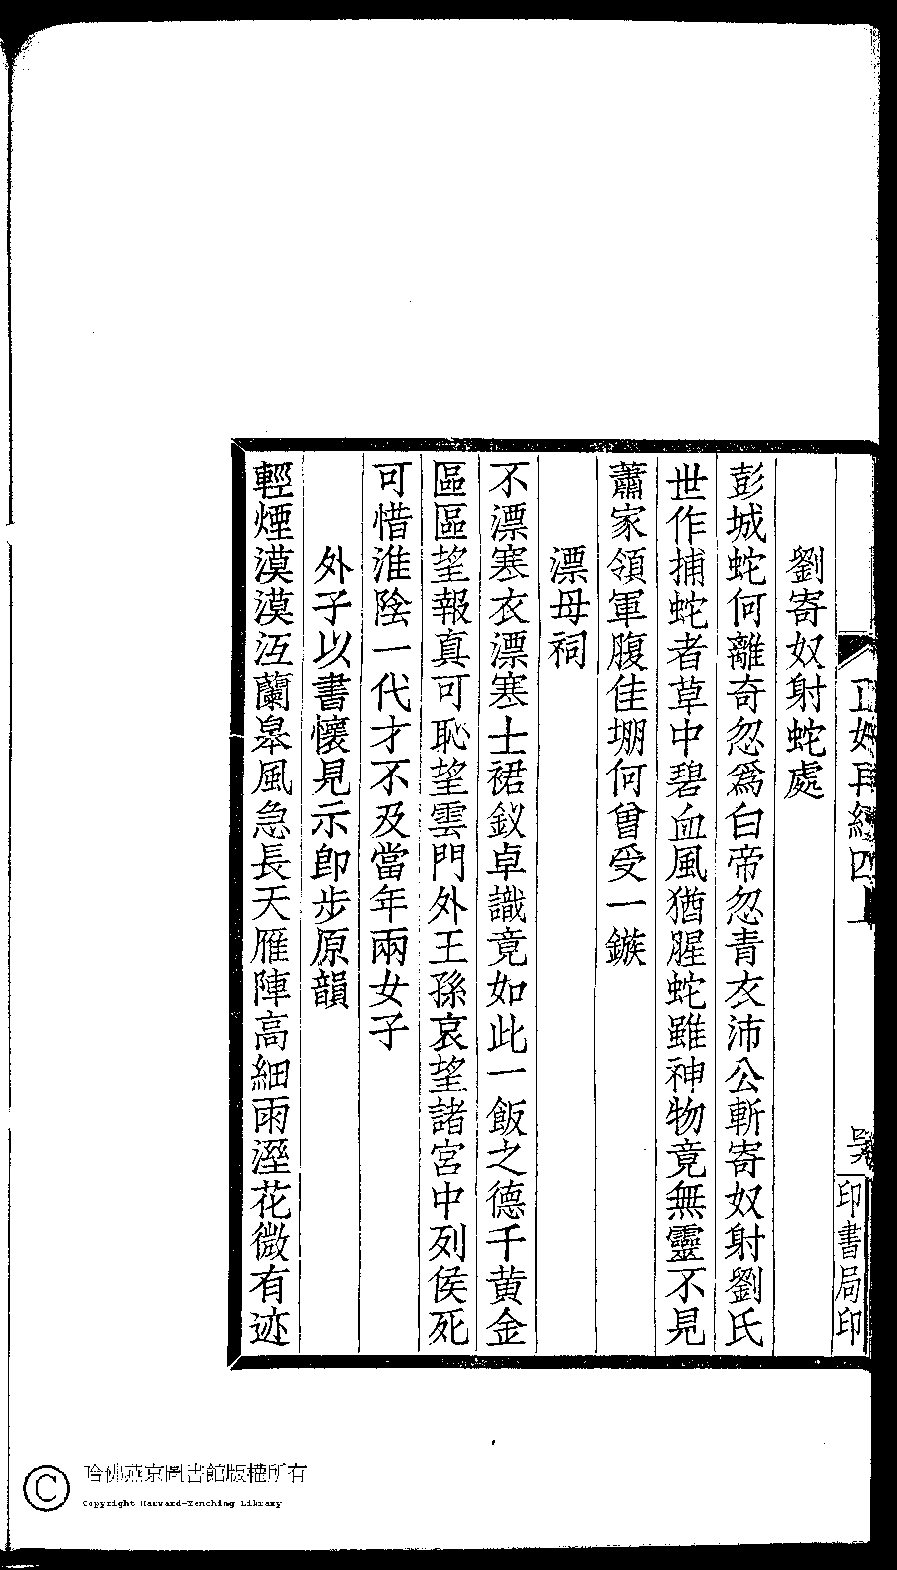 劉寄奴射蛇處
彭城蛇何離奇忽爲白帝忽青衣沛公斬寄奴射劉氏
世作捕蛇者草中碧血風猶腥蛇雖神物竟無靈不見
蕭家領軍腹佳堋何曾受一鏃
漂母祠
不漂寒衣漂寒士裙釵卓識竟如此一飯之德千黄金
區區望報真可恥望雲門外王孫哀望諸宮中列侯死
可惜淮陰一代才不及當年兩女子
外子以書懷見示卽步原韻
輕煙漠漠沍蘭皋風急長天雁陣高細雨溼花微有迹
再續四上
印書局印
哈佛燕京圖書館版權所有
Copyright Harvard-Yenching Library